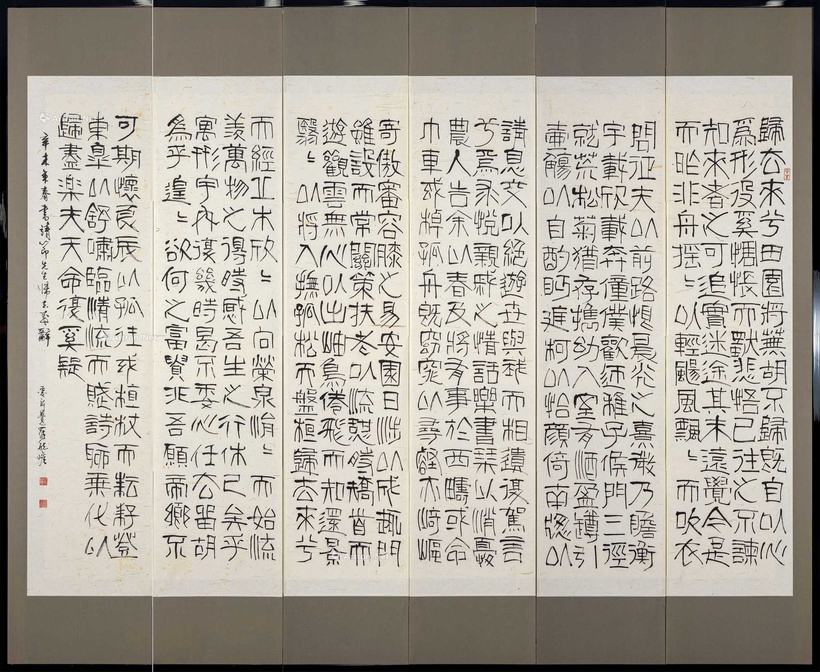 歸去來兮田園將蕪胡不歸旣自以心
爲形役奚惆悵而獨悲悟已往之不諫
知來者之可追實迷途其未遠覺今是
而昨非舟搖〻以輕颺風飄〻而吹衣
問征夫以前路恨晨光之熹微乃瞻衡
宇載欣載奔僮僕歡迎稚子候門三徑
就荒松菊猶存携幼入室有酒盈罇引
壺觴以自酌眄庭柯以怡顔倚南窓以
請息交以絶遊世與我而相遺復駕言
兮焉求悅親戚之情話樂書琴以消憂
農人告余以春及將有事於西疇或命
巾車或棹孤舟旣窈窕以尋壑亦崎嶇
寄傲審容膝之易安園日涉以成趣門
雖設而常關策扶老以流憩時矯首而
遊觀雲無心以出岫鳥倦飛而知還景
翳〻以將入撫孤松而盤桓歸去來兮
而經丘木欣〻以向榮泉涓〻而始流
羨萬物之得時感吾生之行休已矣乎
寓形宇內復幾時曷不委心任去留胡
爲乎遑〻欲何之富貴非吾願帝鄕不
可期懷良辰以孤往或植杖而耘耔登
東皐以舒嘯臨淸流而賦詩聊乘化以
歸盡樂夫天命復奚疑
辛未春書靖節先生歸去來辭